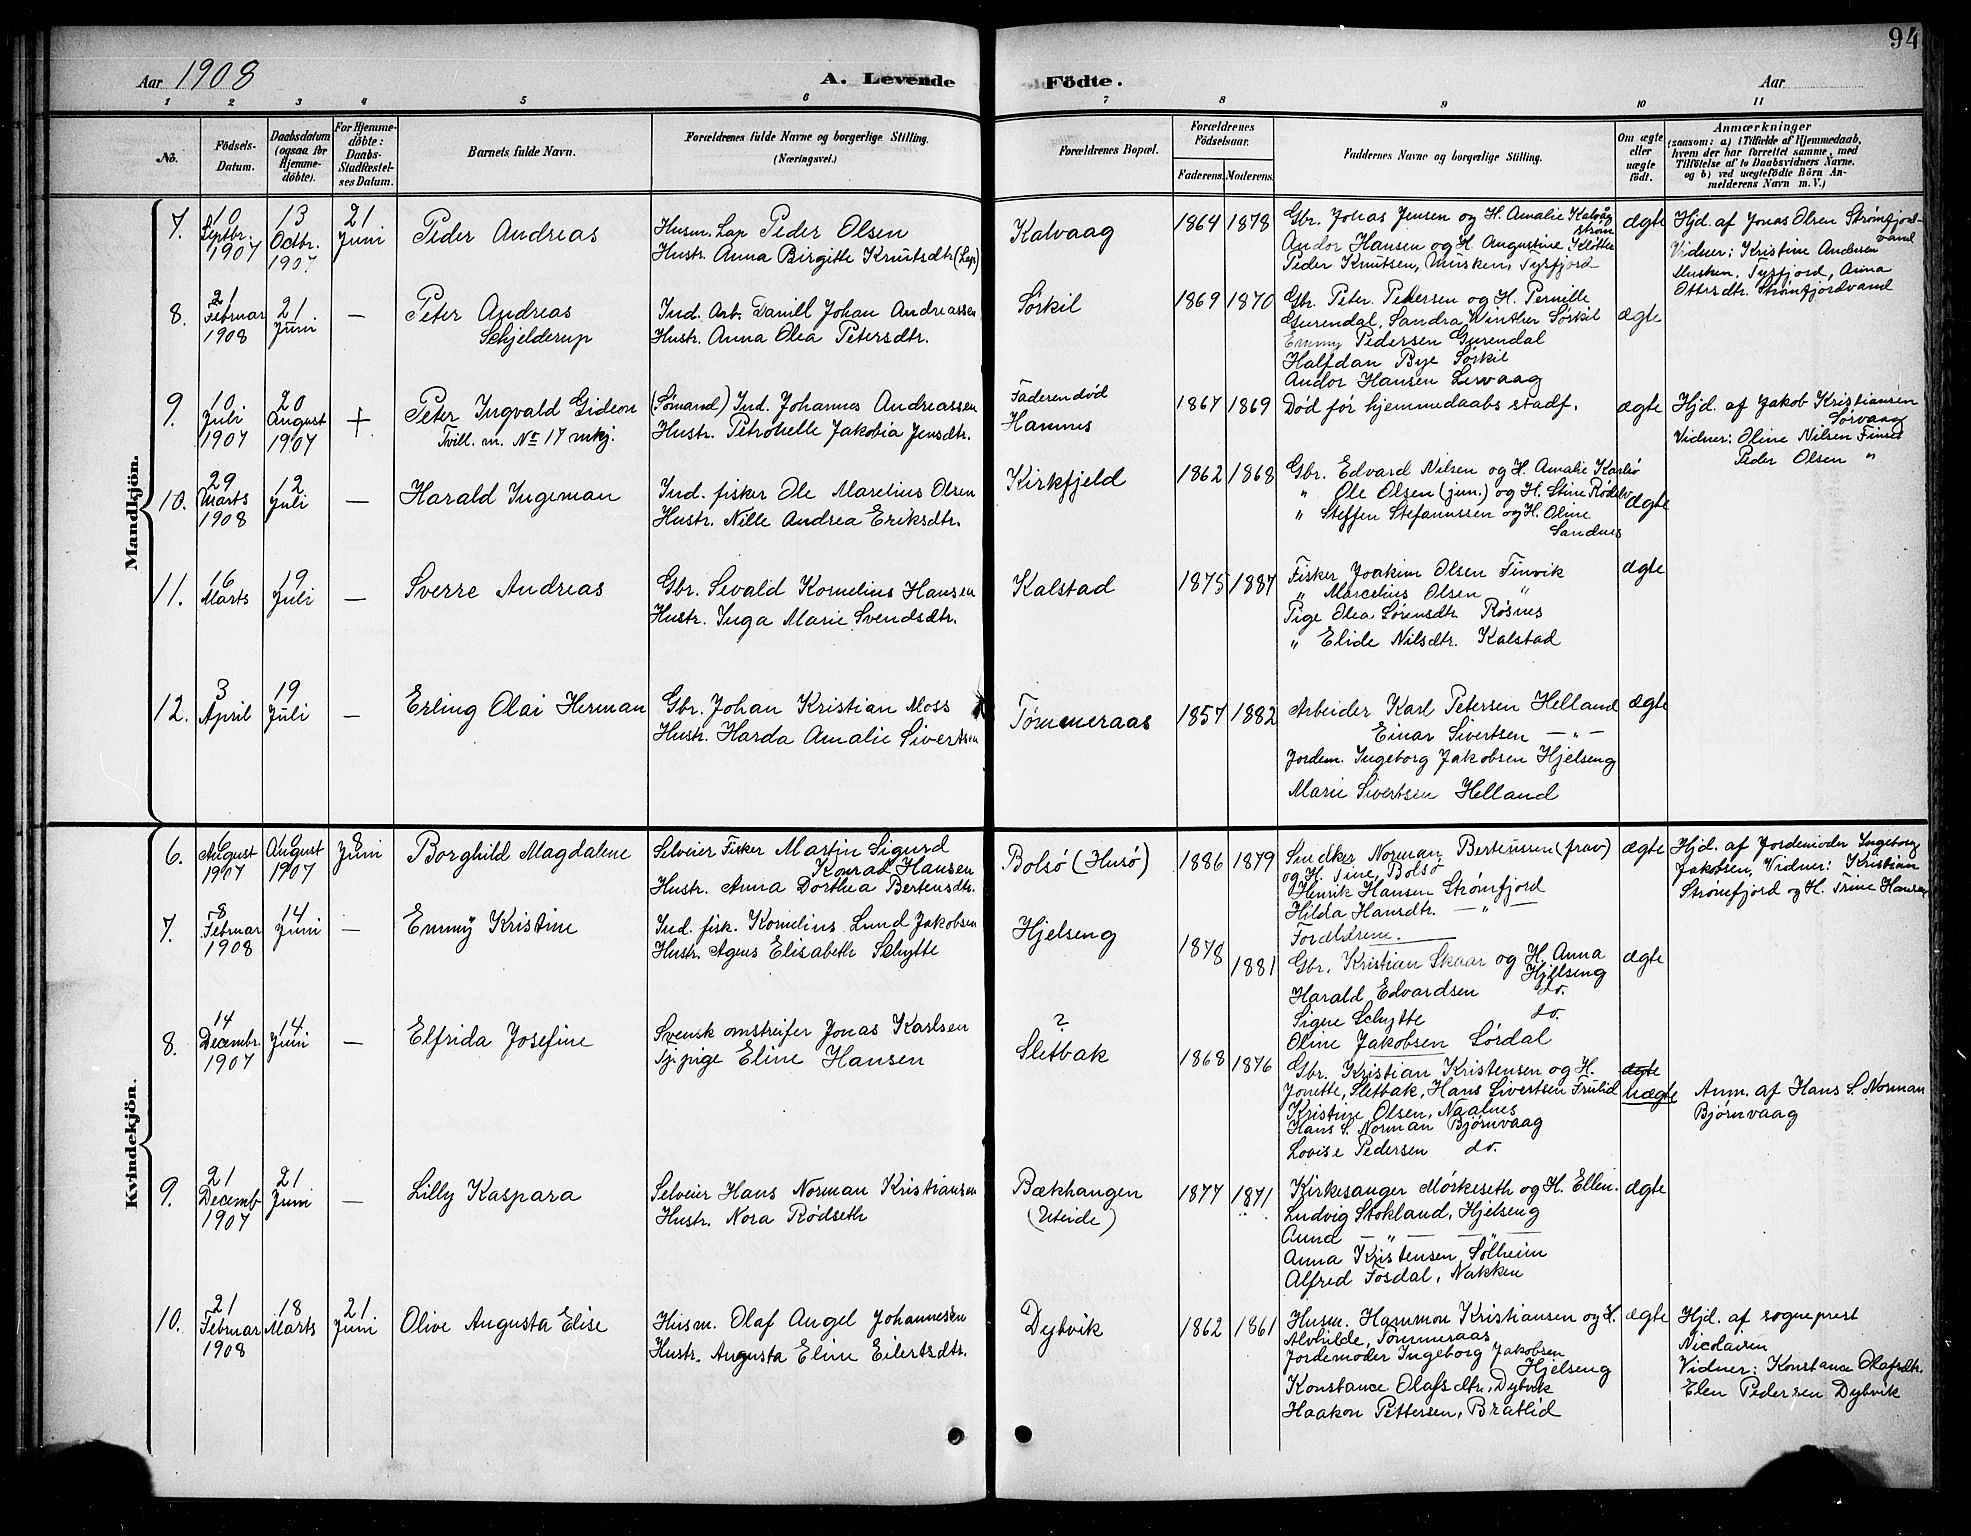 94
Aar 1908
A. Levende Födte.
Aar
1 2 3 4 5 6 7 8 9 10 11
No.
Födsels-Datum.
Daabsdatum (ogsaa for Hjemme-döbte).
For Hjemme-döbte: Daabs-Stadfæstel-ses Datum.
Barnets fulde Navn.
Forældrenes fulde Navne og borgerlige Stilling. (Næringsvei.)
Forældrenes Bopæl.
Forældrenes Födselsaar.
Faderens. Moderens.
Faddernes Navne og borgerlige Stilling.
Om ægte eller uægte födt.
Anmærkninger
(saasom: a) i Tilfælde af Hjemmedaab,
hvem der har forrettet samme, med
Tilföielse af to Daabsvidners Navne.
og b) ved uægtefödte Börn An-
melderens Navn m. V.)
Mandkjön.
7.
10 Septbr. 1907
13 Octbr. 1907
21 Juni
Peder Andreas
Husm. Lap Peder Olsen
Hustr. Anna Birgitte Knutsdtr (Lap)
Kalvaag
1864 1878
Gbr. Jonas Jensen og H. Amalie Kalvåg
strøm
Andor Hansen og H. Augustine Kløtte
Peder Knutsen, Musken, Tysfjord
ægte
Hjd. af Jonas Olsen Strømfjord-
vand
Vidner: Kristine Andersen
Musken, Tysfjord, Anna
Ottersdtr. Strømfjordvand
8.
21 Februar 1908
21 Juni
—
Peter Andreas
Schjelderup
Ind. Arb. Daniel Johan Andreassen
Hustr. Anna Olea Petersdtr.
Sørkil
1869 1870
Gbr. Peter Pedersen og H. Pernille
Gurendal, Sandra Winther Sørkil
Emmy Pedersen Gurendal
Halfdan Bye Sørkil
Andor Hansen Lervaag
ægte
9.
10 Juli 1907
20 August 1907
+
Peter Ingvald Gideon
Tvill. m. No 17 mkj.
(Sømand) Ind. Johannes Andreassen
Hustr. Petronelle Jakobia Jensdtr.
Faderen død
Hamnes
1867 1869
Død før hjemmedaabs stadf.
ægte
Hjd. af Jakob Kristiansen
Sørvaag
Vidner: Oline Nilsen Finset
Peder Olsen "
10.
29 Marts 1908
12 Juli
—
Harald Ingeman
Ind. fisker Ole Marelius Olsen
Hustr. Nille Andrea Eriksdtr.
Kirkfjeld
1862 1868
Gbr. Edvard Nilsen og H. Amalie Karlsø
" Ole Olsen (jun.) og H. Stine Rødelv
" Steffen Stefanussen og H. Oline
Sandnes
ægte
11.
16 Marts
19 Juli
—
Sverre Andreas
Gbr. Sevald Kornelius Hansen
Hustr. Inga Marie Svendsdtr.
Kalstad
1875 1887
Fisker Joakim Olsen Finvik
" Marcelius Olsen "
Pige Olea Sørensdtr. Røsnes
" Elide Nilsdtr. Kalstad
ægte
12.
3 April
19 Juli
—
Erling Olai Herman
Gbr. Johan Kristian Moss
Hustr. Harda Amalie Sivertsen
Tømmeraas
1857 1882
Arbeider Karl Petersen Helland
Einar Sivertsen — " —
Jordem. Ingeborg Jakobsen Hjelseng
Marie Sivertsen Helland
ægte
Kvindekjön.
6.
6 August 1907
9 August 1907
8 Juni
Borghild Magdalene
Selveier Fisker Martin Sigurd
Konrad Hansen
Hustr. Anna Dorthea Bertensdtr.
Bolsø (Husø)
1886 1879
Snedker Norman Berteussen (frav)
og H. Tine, Bolsø
Henrik Hansen Strømfjord
Hilda Hansdtr. — " —
Forældrene.
ægte
Hjd. af Jordemoder Ingeborg
Jakobsen, Vidner: Kristian
Strømfjord og H. Trine Hansen
7.
8 Februar 1908
14 Juni
—
Emmy Kristine
Ind. fisk. Kornelius Lund Jakobsen
Hustr. Agnes Elisabeth Schytte
Hjelseng
1878 1881
Gbr. Kristian Skaar og H. Anna
Hjelseng
Harald Edvardsen do.
Signe Schytte do.
Oline Jakobsen Sørdal
ægte
8.
14 Decembr. 1907
14 Juni
—
Elfrida Josefine
Svensk omstreifer Jonas Karlsen
Tj.pige Eline Hansen
?
Sletbak
1868 1876
Gbr. Kristian Kristensen og H.
Jonette, Sletbak, Hans Sivertsen Frulid
Kristine Olsen, Naalnes
Hans S. Norman Bjørnvaag
Lovise Pedersen do.
ægte
uægte
Anm. af Hans S. Norman
Bjørnvaag
9.
21 Decemb 1907
21 Juni
—
Lilly Kaspara
Selveier Hans Norman Kristiansen
Hustr. Nora Rødseth
Bækhaugen
(Uteide)
1877 1871
Kirkesanger Mørkeseth og H. Ellen.
Ludvig Stokland, Hjelseng
Aund — " — — " —
Anna Kristensen Solheim
Alfred Fosdal, Nakken
ægte
10.
21 Februar 1908
18 Marts
21 Juni
Olive Augusta Elise
Husm. Olaf Angel Johannesen
Hustr. Augusta Eline Eilertsdtr.
Dybvik
1862 1861
Husm. Hammon Kristiansen og H.
Alvhilde, Tømmeraas
Jordemoder Ingeborg Jakobsen
Hjelseng
Konstance Olafsdtr., Dybvik
Haakon Pettersen, Bratlid
ægte
Hjd. af sogneprest
Nicolaisen
Vidner: Konstance Olafsdtr.
Elen Pedersen Dybvik